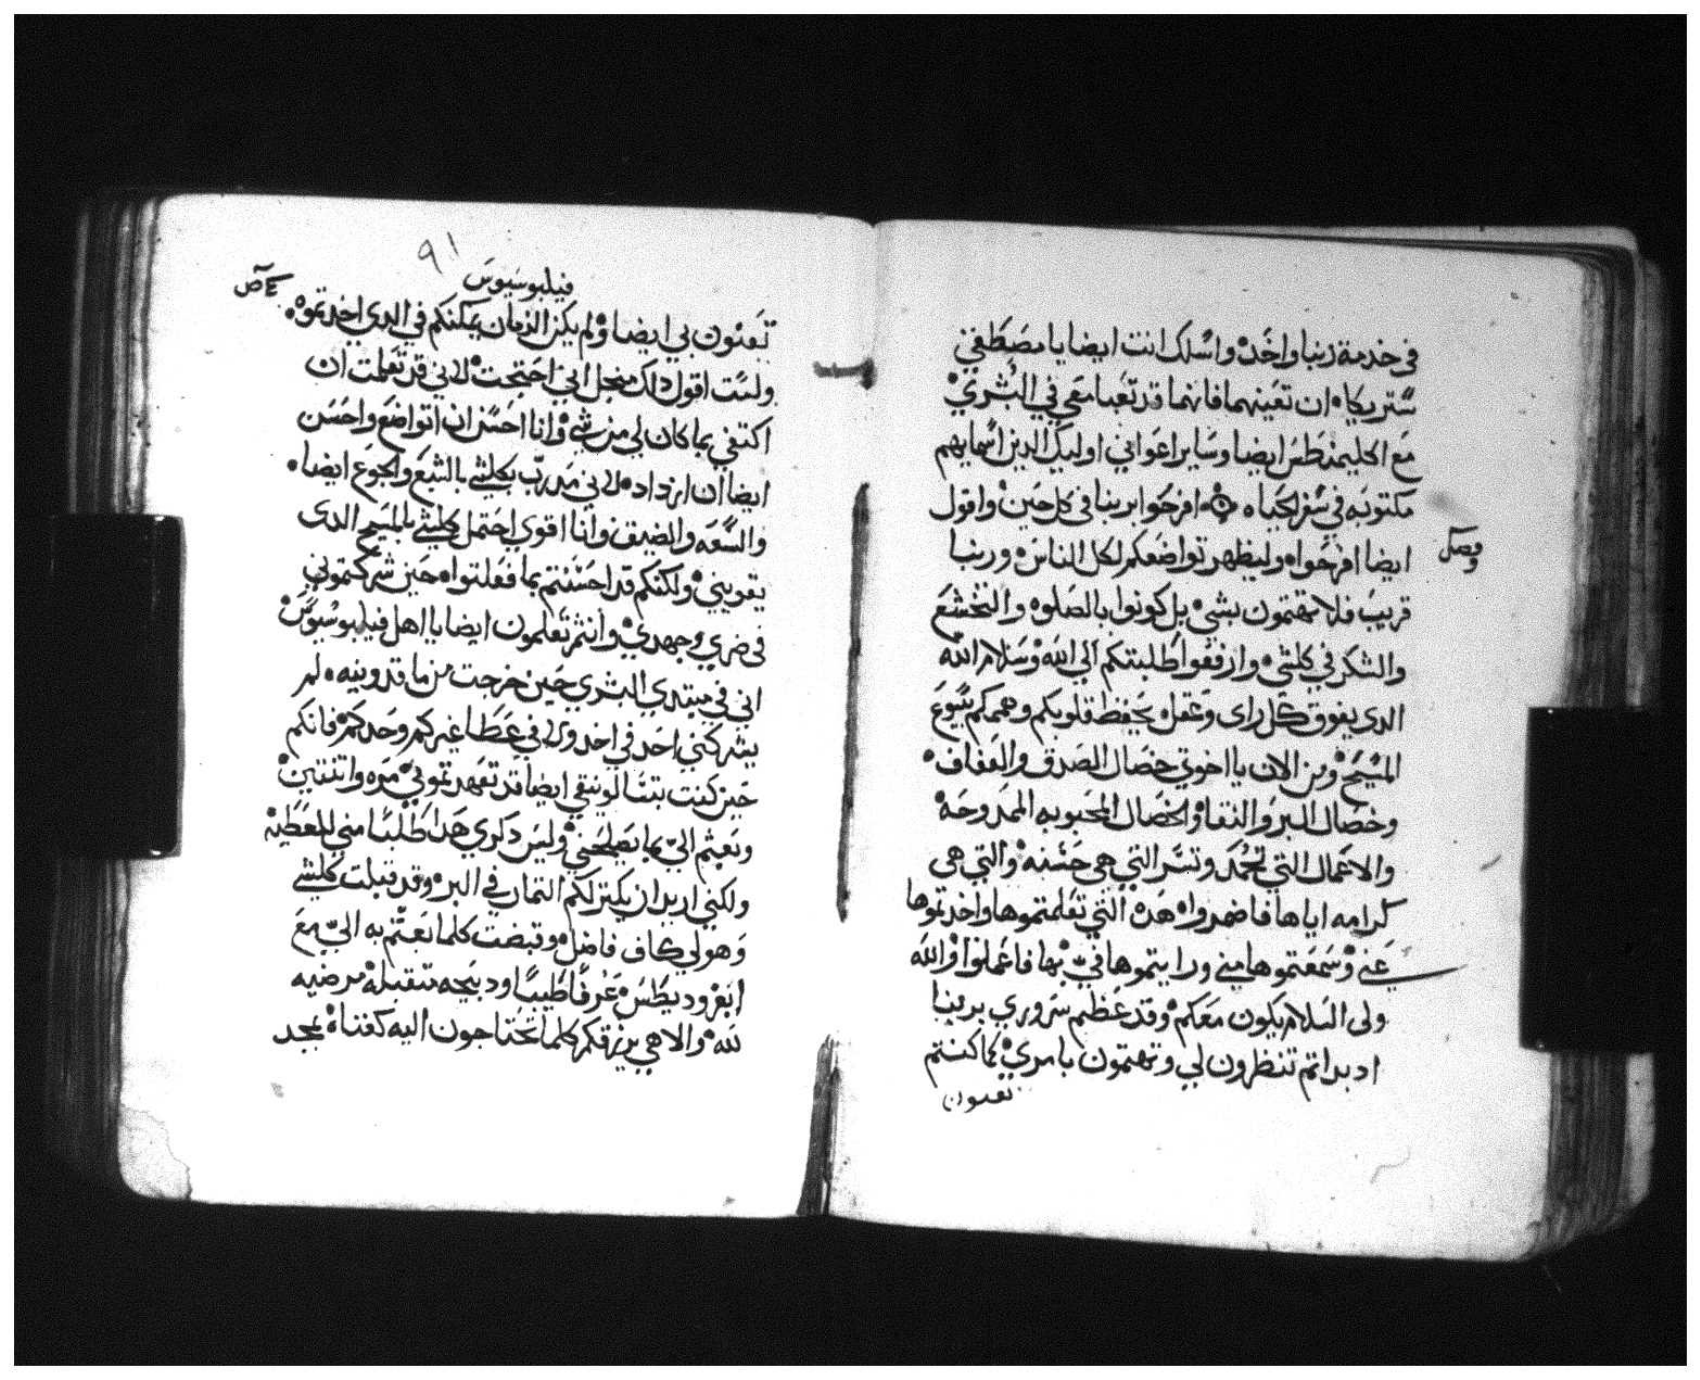 في خدمة ربنا واحدة واسلك انت ايضا يا مصطفي
ستريكا ان تعينهما فانهما قد تعبا معي في البشري
مع اكليمنطس ايضا وساير اعواني اوليك الذين اسمايهم
مكتوبه في سفر الحياه افرحوا بربنا في كل حين واقول
فصل
ايضا افرحوا وليظهر تواضعكم لكل الناس وربنا
قريب فلا تهتمون بشي بل كونوا بالصلوه والتخشع
والشكر في كلشي وارفعوا طلبتكم الي الله وسلام الله
الدي يفوق كل راي وعقل يحفظ قلوبكم وهممكم بيسوع
المسيح ومن الان يا اخوتي خصال الصدق والعفاف
وخصال البر والنقا والخصال المحبوبه الممدوحه
والاعمال التي تحمد وتسر التي هي حسنه والتي هي
كرامه اياها فاضمروا هده التي تعلمتموها واخدتموها
عني وسمعتموها مني ورايتموها في بها فاعملوا والله
ولي السلام يكون معكم وقد عظم سروري بربنا
اد بداتم تنظرون لي وتهتمون بامري كما كنتم
تعنون
٩١
فيلبوسيوس
تعنون بي ايضا ولم يكن الزمان يمكنكم في الدي اخدتموه
ولست اقول دلك منجل اني احتجت لاني قد تعلمت ان
اكتفي بما كان لي من شي وانا احسن ان اتواضع واحسن
ايضا ان ازداد لاني مدرب بكلشي بالشبع والجوع ايضا
والسعه والضيق وانا اقوي احتمل كلشي بالمسيح الدي
يقويني ولكنكم قد احسنتم بما فعلتوا حين شركتموني
في ضري وجهدي وانتم تعلمون ايضا يا اهل فيلبوسيوس
اني في مبتدي البشري حين خرجت من ماقدونيه لم
يشركني احد في اخد ولا في عطا غيركم وحدكم فانكم
حين كنت بتسالونيقي ايضا قد تعهدتموني مره واتنتين
وبعتم الي بما يصلحني وليس دكري هدا طلبا مني للعطيه
ولكني اريد ان يكتر لكم التمار في البر وقد قبلت كلشي
وهو لي كاف فاضل وقبضت كلما بعتم به الي مع
ابفروديطس عرفا طيبا ودبيحه متقبله مرضيه
لله والاهي يرزقكم كلما تحتاجون اليه كغناه بمجد